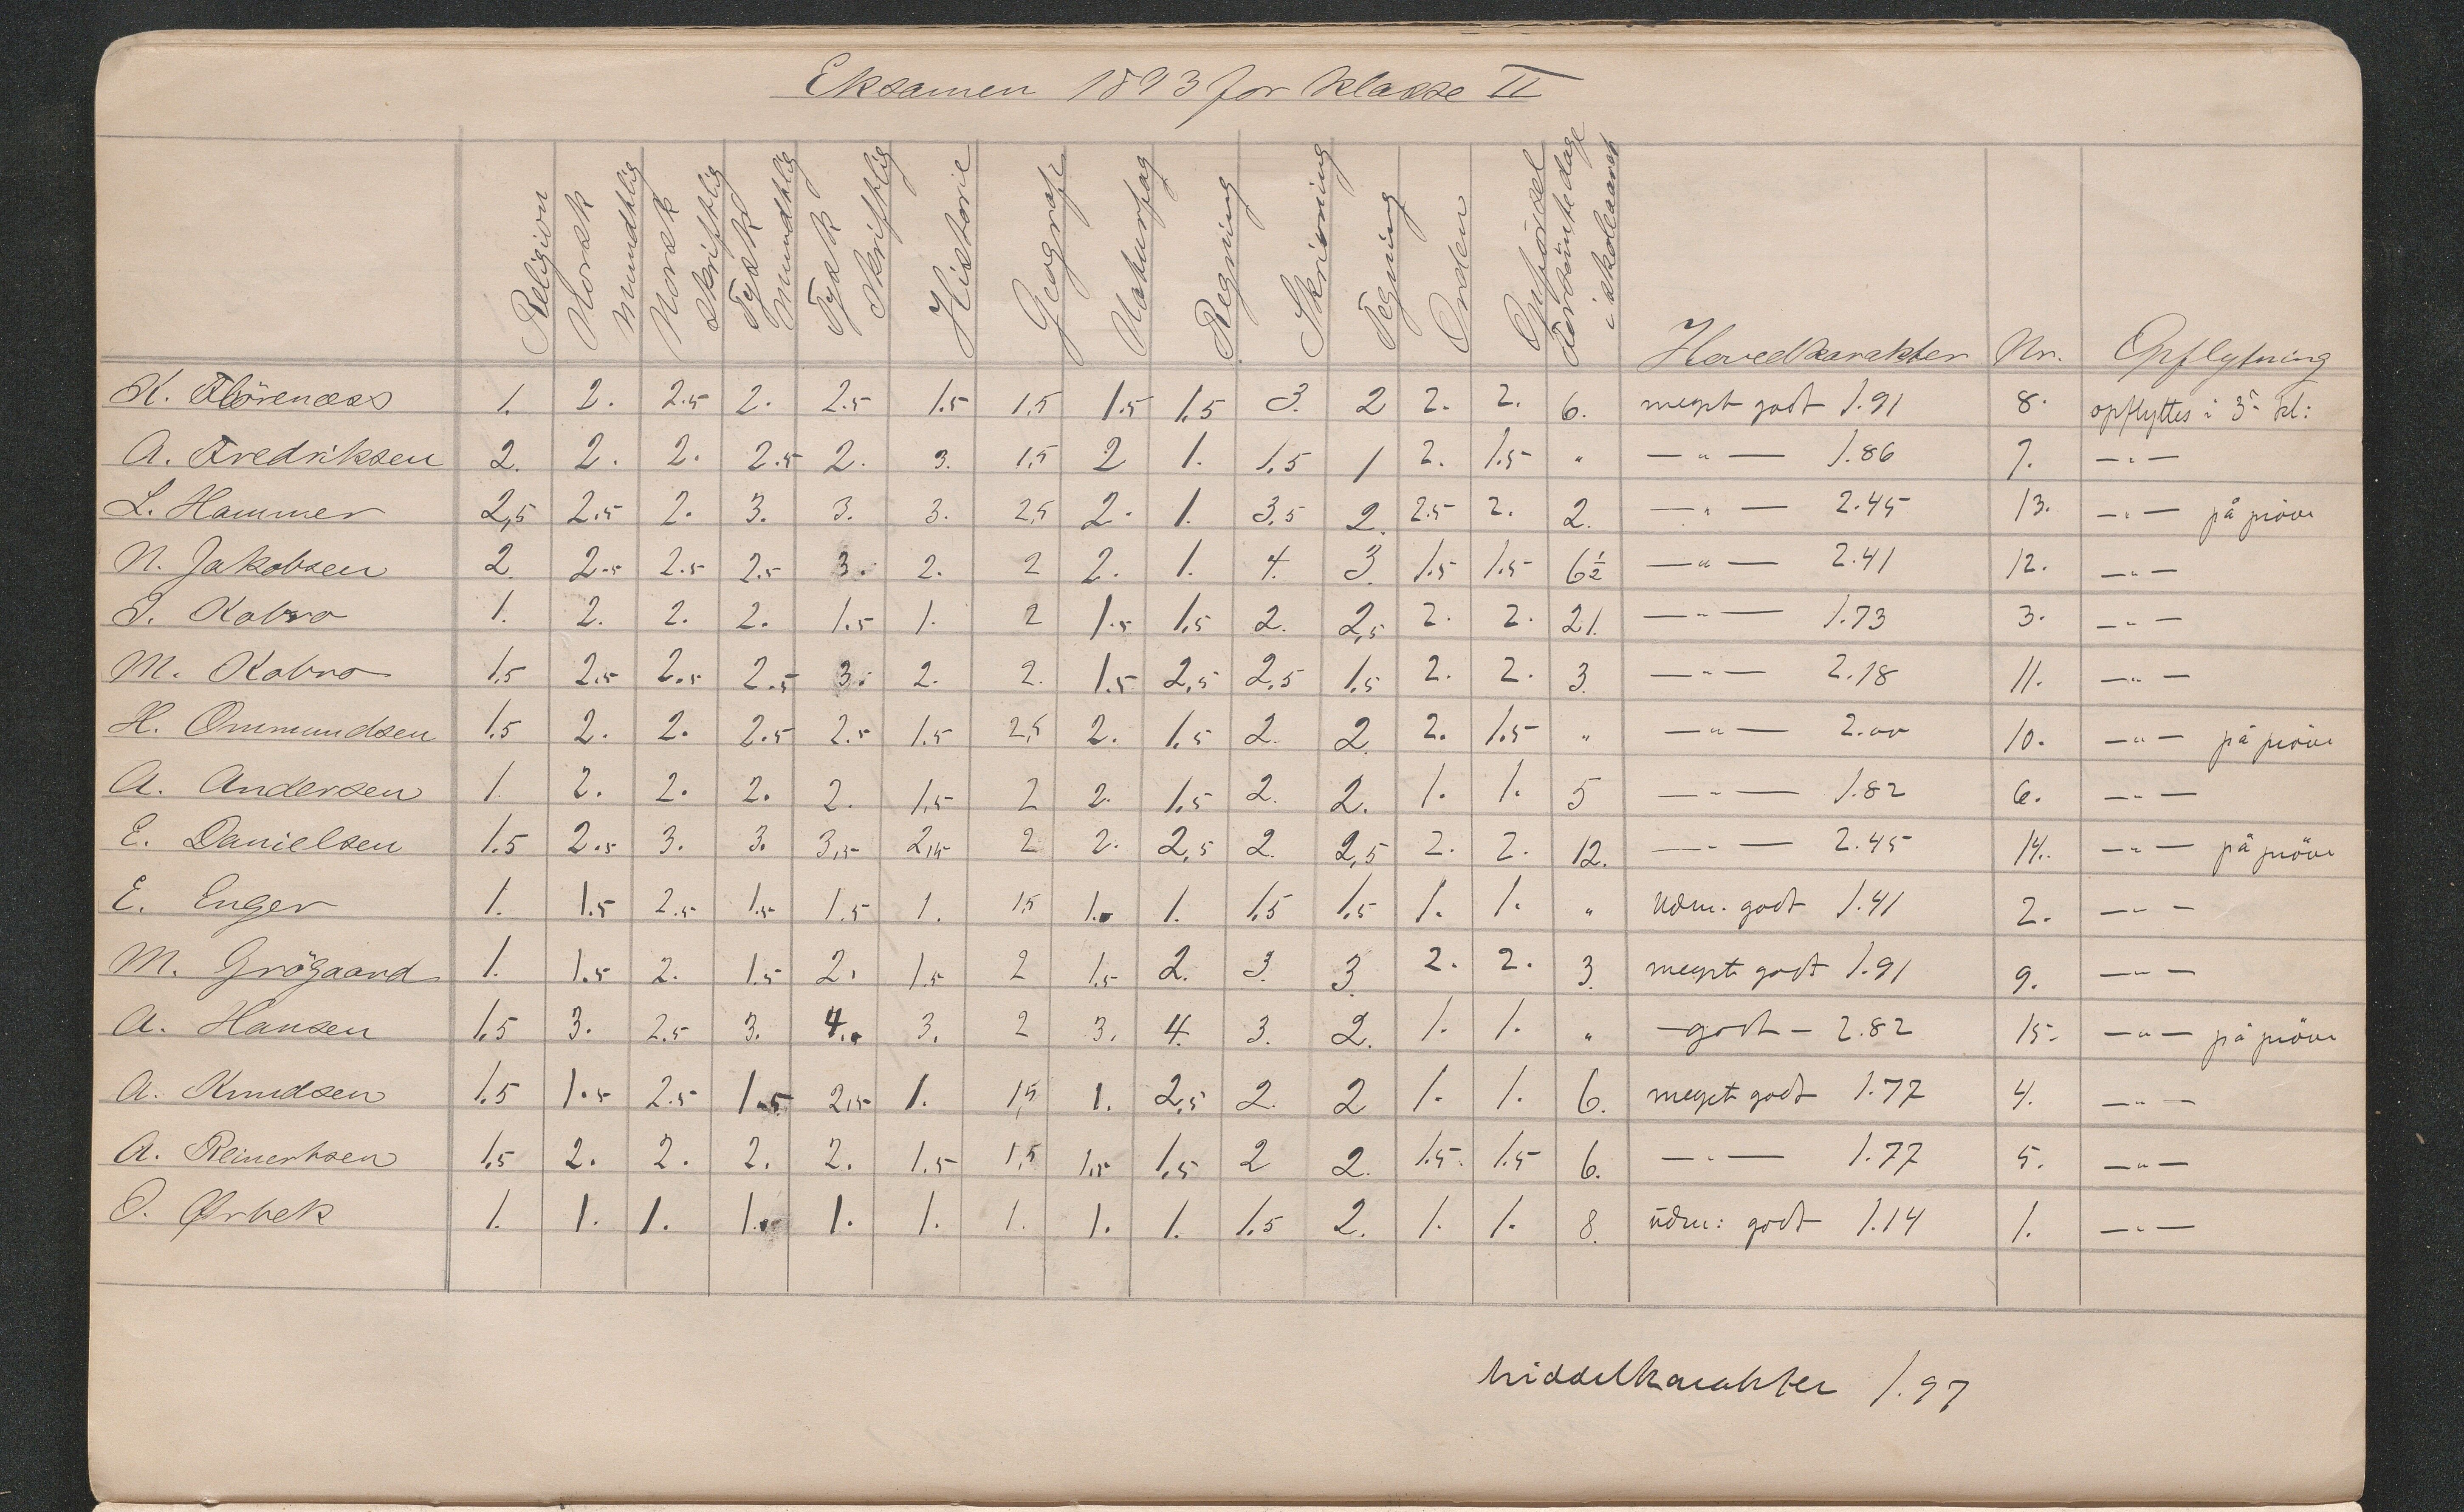 Eksamen 1893 for klasse II
Religion Norsk Mundtlig Norsk Skriftlig Tysk Mundtlig Tysk Skriftlig Historie Geografi Naturfag Regning Skrivning Tegning Orden Opførsel Forsömte dage i skoleaaret Hovedkarakter Nr. Opflytning
K. Flörenæss 1. 2. 2.5 2. 2.5 1.5 1,5 1.5 1,5 3. 2 2. 2. 6. meget godt 1.91 8. opflyttes i 3. kl:
A. Fredriksen 2. 2. 2. 2.5 2. 3. 1,5 2 1. 1,5 1 2. 1.5 " — " — 1.86 7. — " —
L. Hammer 2,5 2.5 2. 3. 3. 3. 2,5 2. 1. 3,5 2. 2.5 2. 2. — " — 2.45 13. — " — på pröve
N. Jakobsen 2. 2.5 2.5 2.5 3. 2. 2 2. 1. 4. 3. 1.5 1.5 6½ — " — 2.41 12. — " —
J. Kobro 1. 2. 2. 2. 1.5 1. 2 1.5 1,5 2. 2,5 2. 2. 21. — " — 1.73 3. — " —
M. Kobro 1,5 2.5 2.5 2.5 3. 2. 2. 1.5 2,5 2,5 1.5 2. 2. 3. — " — 2.18 11. — " —
H. Ommundsen 1.5 2. 2. 2.5 2.5 1.5 2,5 2. 1.5 2. 2. 2. 1.5 " — " — 2.00 10. — " — på pröve
A. Andersen 1. 2. 2. 2. 2. 1,5 2 2. 1,5 2. 2. 1. 1. 5 — " — 1.82 6. — " —
E. Danielsen 1.5 2.5 3. 3. 3,5 2,5 2 2. 2,5 2. 2,5 2. 2. 12. — " — 2.45 14. — " — på pröve
E. Enger 1. 1.5 2.5 1.5 1.5 1. 1,5 1. 1. 1,5 1.5 1. 1. " Udm. godt 1.41 2. — " —
M. Grögaard 1. 1.5 2. 1.5 2. 1.5 2 1.5 2. 3. 3. 2. 2. 3. meget godt 1.91 9. — " —
A. Hansen 1,5 3. 2.5 3. 4. 3. 2 3. 4. 3. 2. 1. 1. " — godt — 2.82 15. — " — på pröve
A. Knudsen 1.5 1.5 2.5 1.5 2,5 1. 1,5 1. 2,5 2. 2 1. 1. 6. meget godt 1.77 4. — " —
A. Reinertsen 1,5 2. 2. 2. 2. 1.5 1,5 1,5 1,5 2 2. 1.5 1.5 6. — " — 1.77 5. — " —
O. Ørbek 1. 1. 1. 1. 1. 1. 1. 1. 1. 1.5 2. 1. 1. 8. üdm: godt 1.14 1. — " —
Middelkarakter 1.97